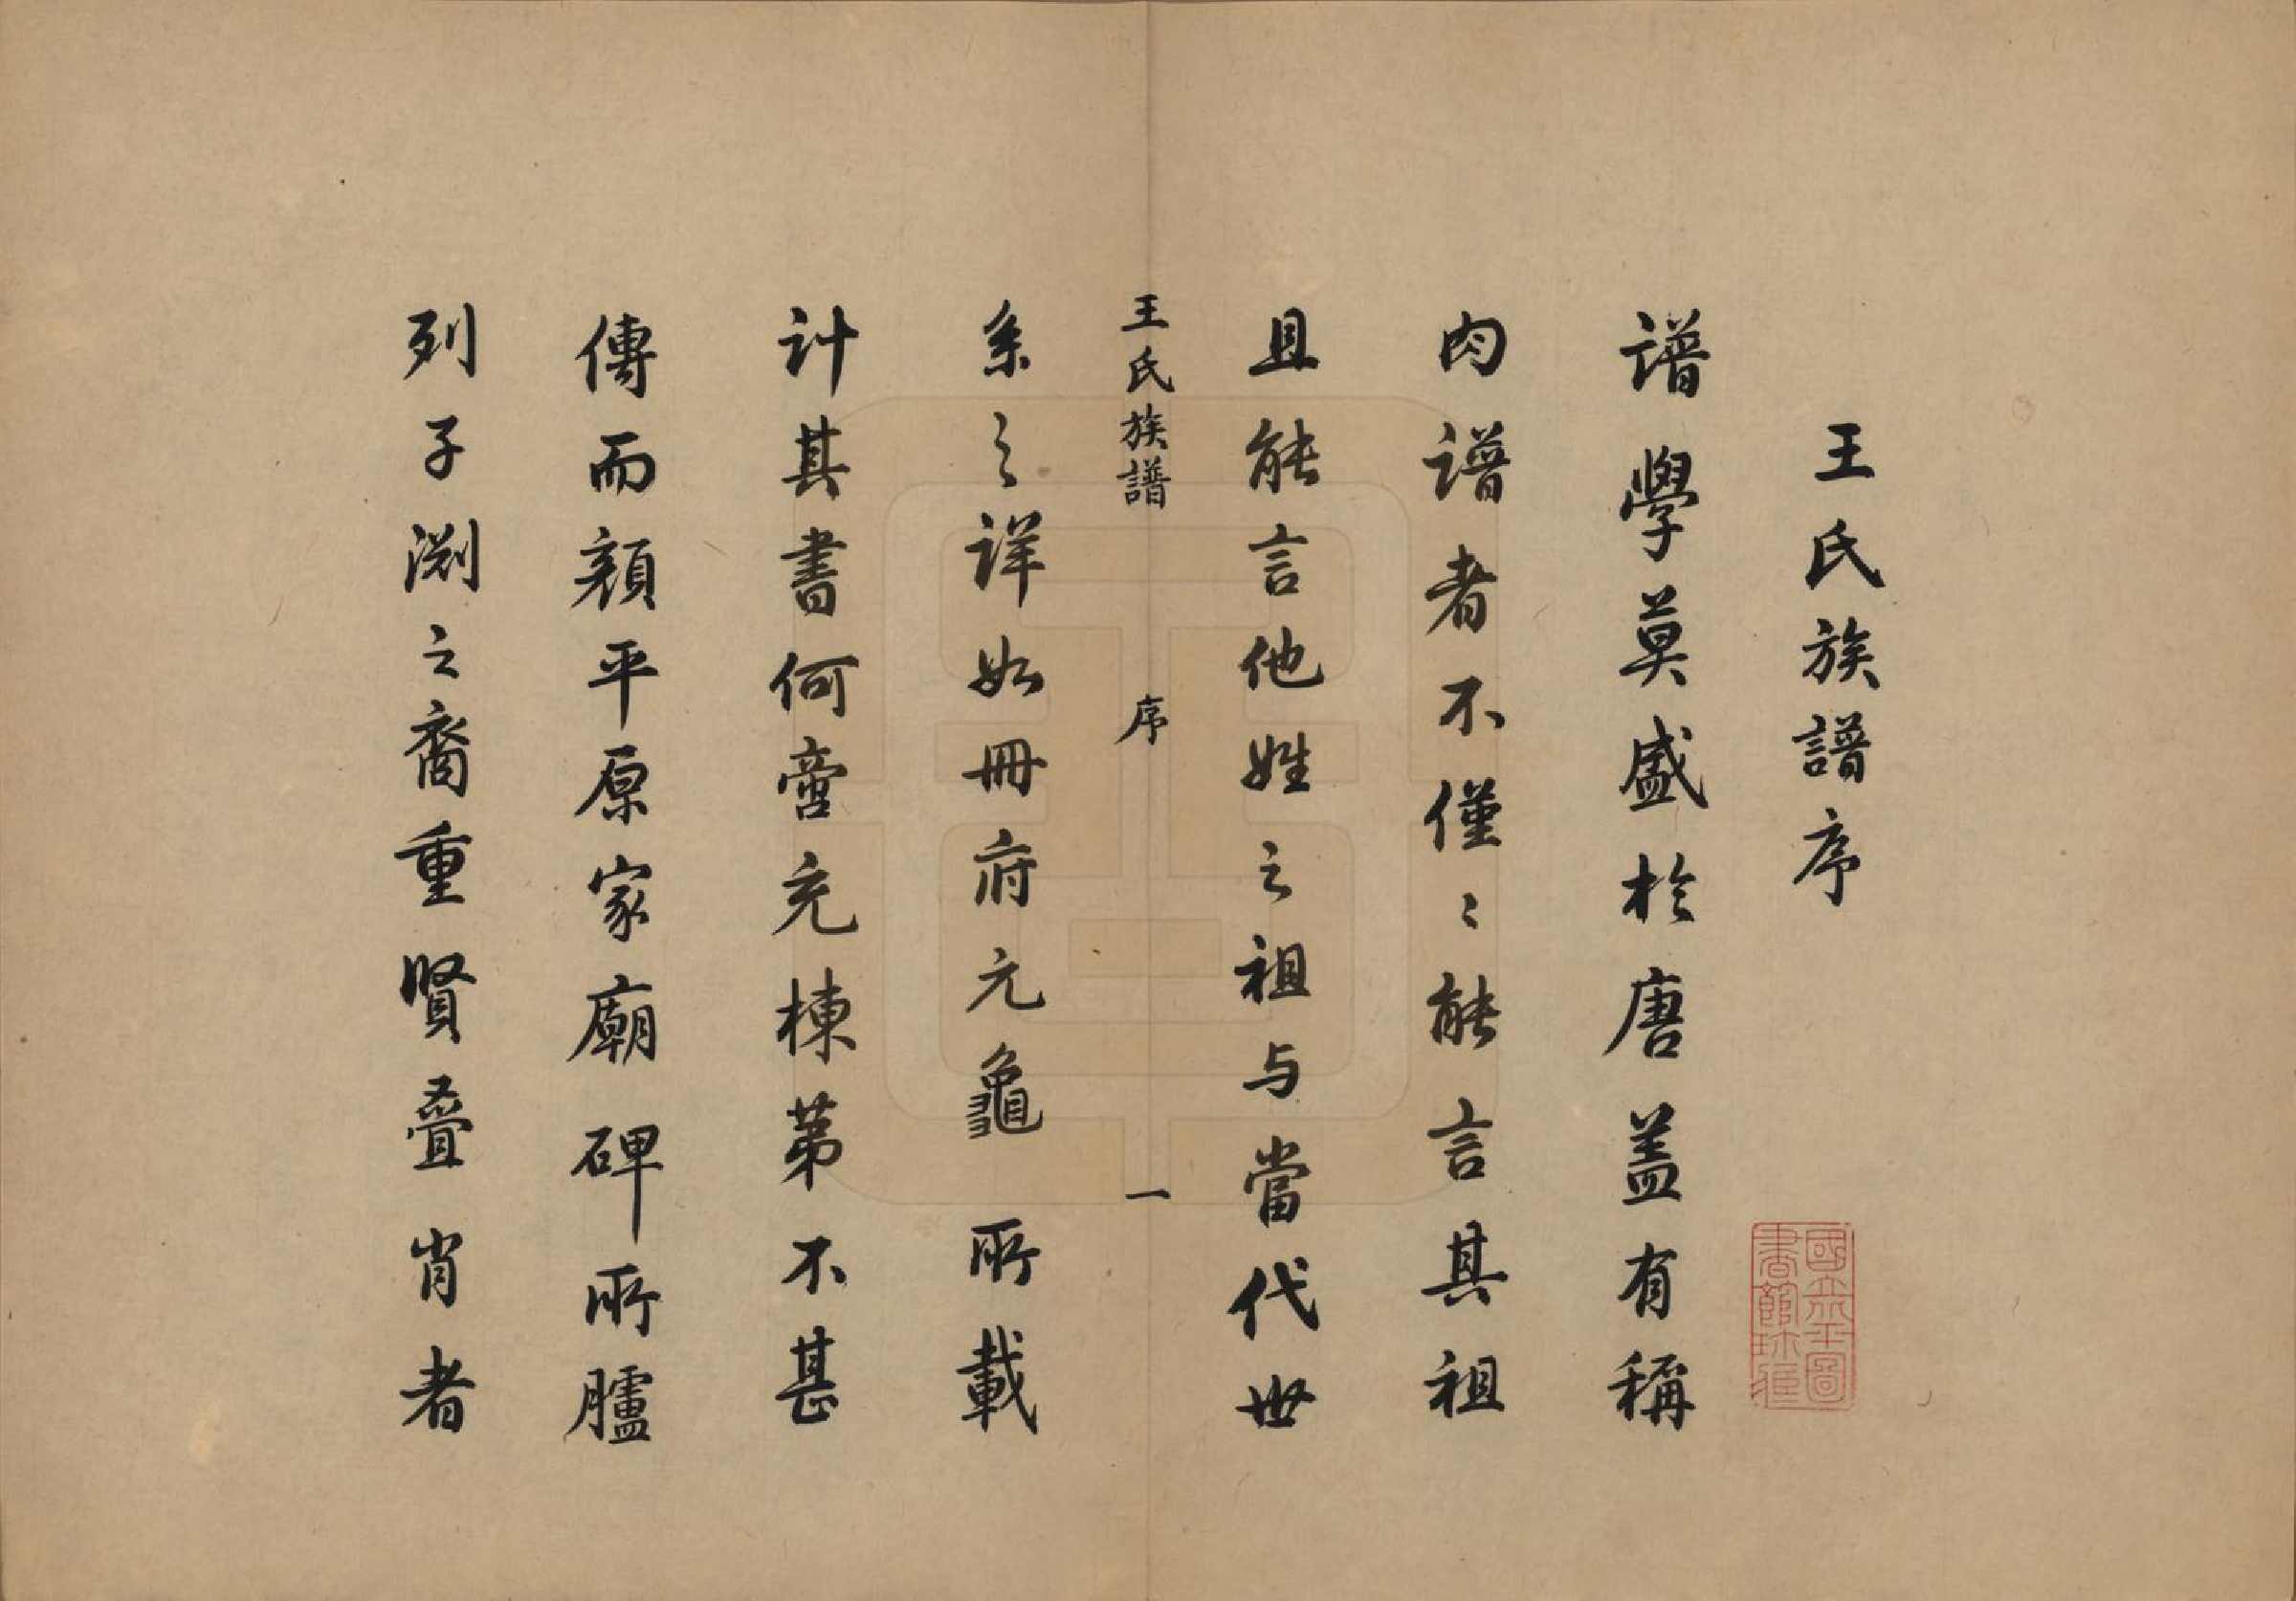 王氏族譜序
譜學莫盛於唐盖有稱
肉譜者不僅〻能言其祖
且能言他姓之祖与當代世
王氏族譜 序 一
系之詳如冊府元龜所載
計其書何啻充棟苐不甚
傳而顔平原家廟碑所臚
列子淵之裔重賢疊肖者
國立北平圖
書館珍藏